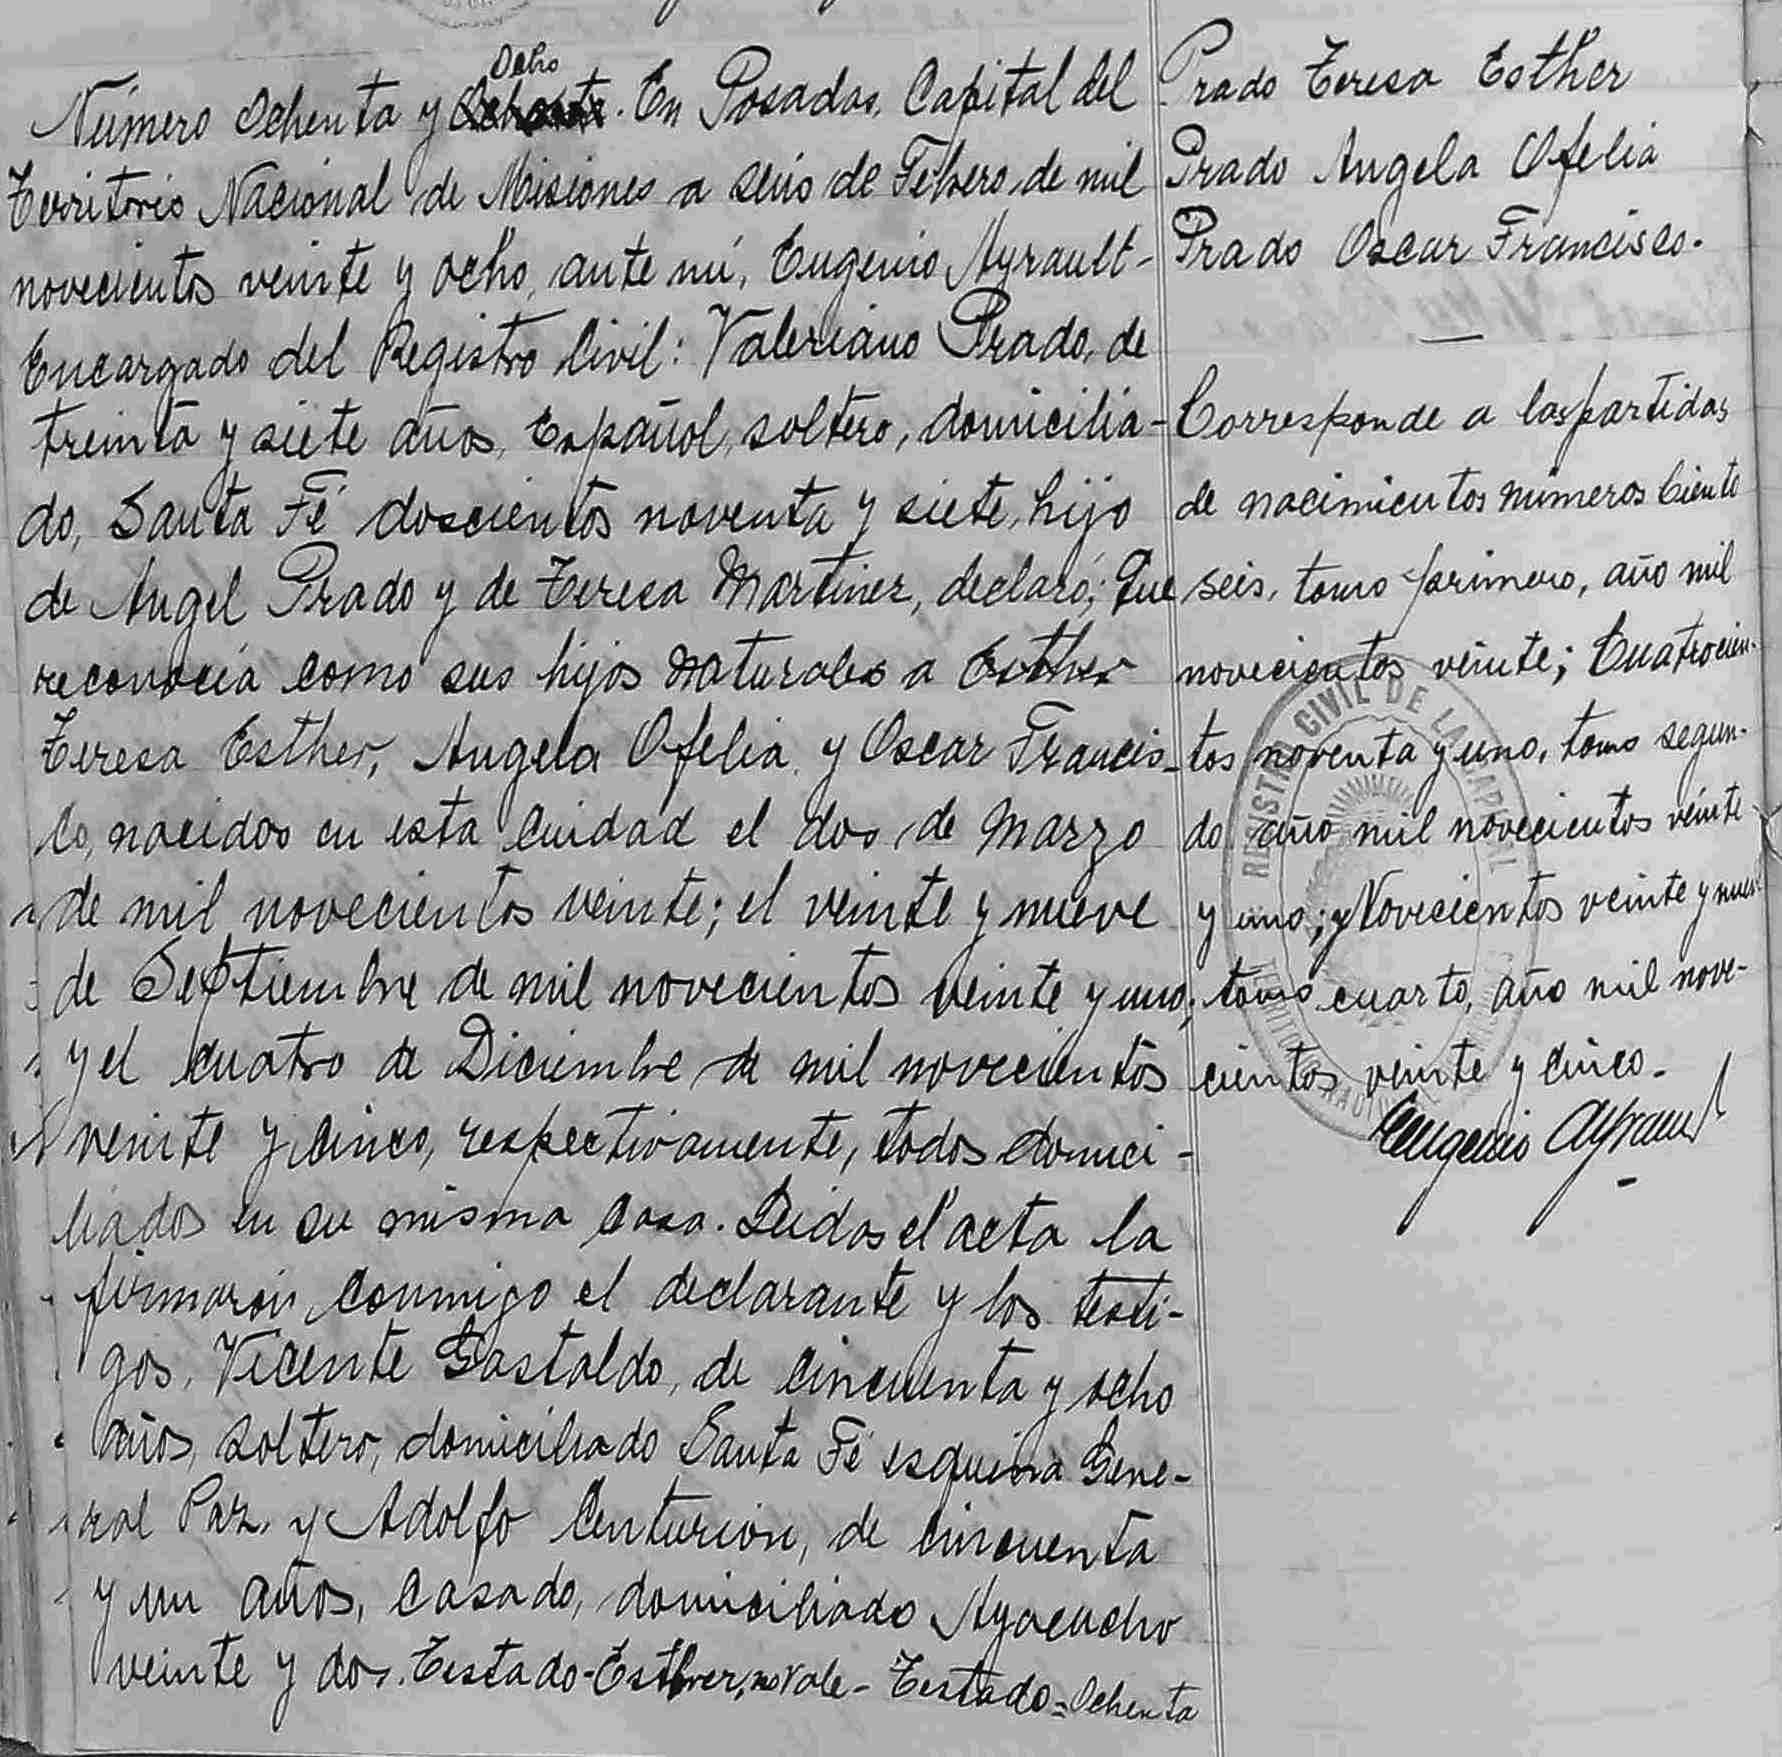 Ocho
Número Ochenta y Ochenta. En Posadas, Capital del
Territorio Nacional de Misiones a seis de Febrero de mil
novecientos veinte y ocho, ante mí, Eugenio Ayrault-
Encargado del Registro Civil: Valeriano Prado, de
treinta y siete años, Español, soltero, domicilia-
do, Santa Fé doscientos noventa y siete, hijo
de Angel Prado y de Teresa Martinez, declaró; Que
reconocía como sus hijos naturales a Esther
Teresa Esther, Angela Ofelia y Oscar Francis-
co, nacidos en esta Ciudad el dos de Marzo
de mil novecientos veinte; el veinte y nueve
de Septiembre de mil novecientos veinte y uno;
y el cuatro de Diciembre de mil novecientos
veinte y cinco, respectivamente, todos domici-
liados en su misma casa. Leidas el acta la
firmaron conmigo el declarante y los testi-
gos, Vicente Gastaldo, de cincuenta y ocho
años, soltero, domiciliado Santa Fé esquina Gene-
ral Paz, y Adolfo Centurión, de cincuenta
y un años, casado, domiciliado Ayacucho
veinte y dos. Testado-Esther, no vale- Testado=Ochenta
Prado Teresa Esther
Prado Angela Ofelia
Prado Oscar Francisco.
Corresponde a las partidas
de nacimientos números Ciento
seis, tomo primero, año mil
novecientos veinte; Cuatrocien-
tos noventa y uno, tomo segun-
do año mil novecientos veinte
y uno; y Novecientos veinte y nueve
tomo cuarto, año mil nove-
cientos veinte y cinco.
Eugenio Ayrault
REGISTRO CIVIL DE LA CAPITAL